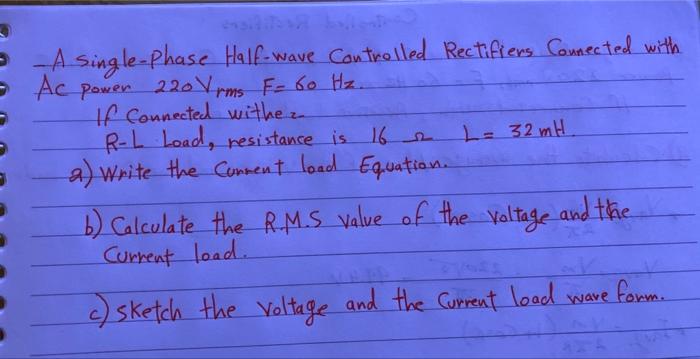 - A Single-Phase Half-wave Controlled Rectifiers Connected with
AC power 220 Vrms F= 60 Hz.
If Connected withe :-
R-L Load, resistance is 16 Ω L= 32 mH.
a) Write the Current load Equation.
b) Calculate the R.M.S value of the voltage and the
Current load.
c) sketch the voltage and the current load wave form.